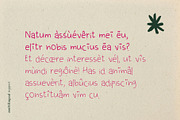 Natum àssùévêrit meï êu,
elitr nobis mucius êa vis?
Et décore interessêt vél, ut vis
mundi regióne! Has id animàl
assuevérit, albúcius adipiscing
constituàm vim cu.